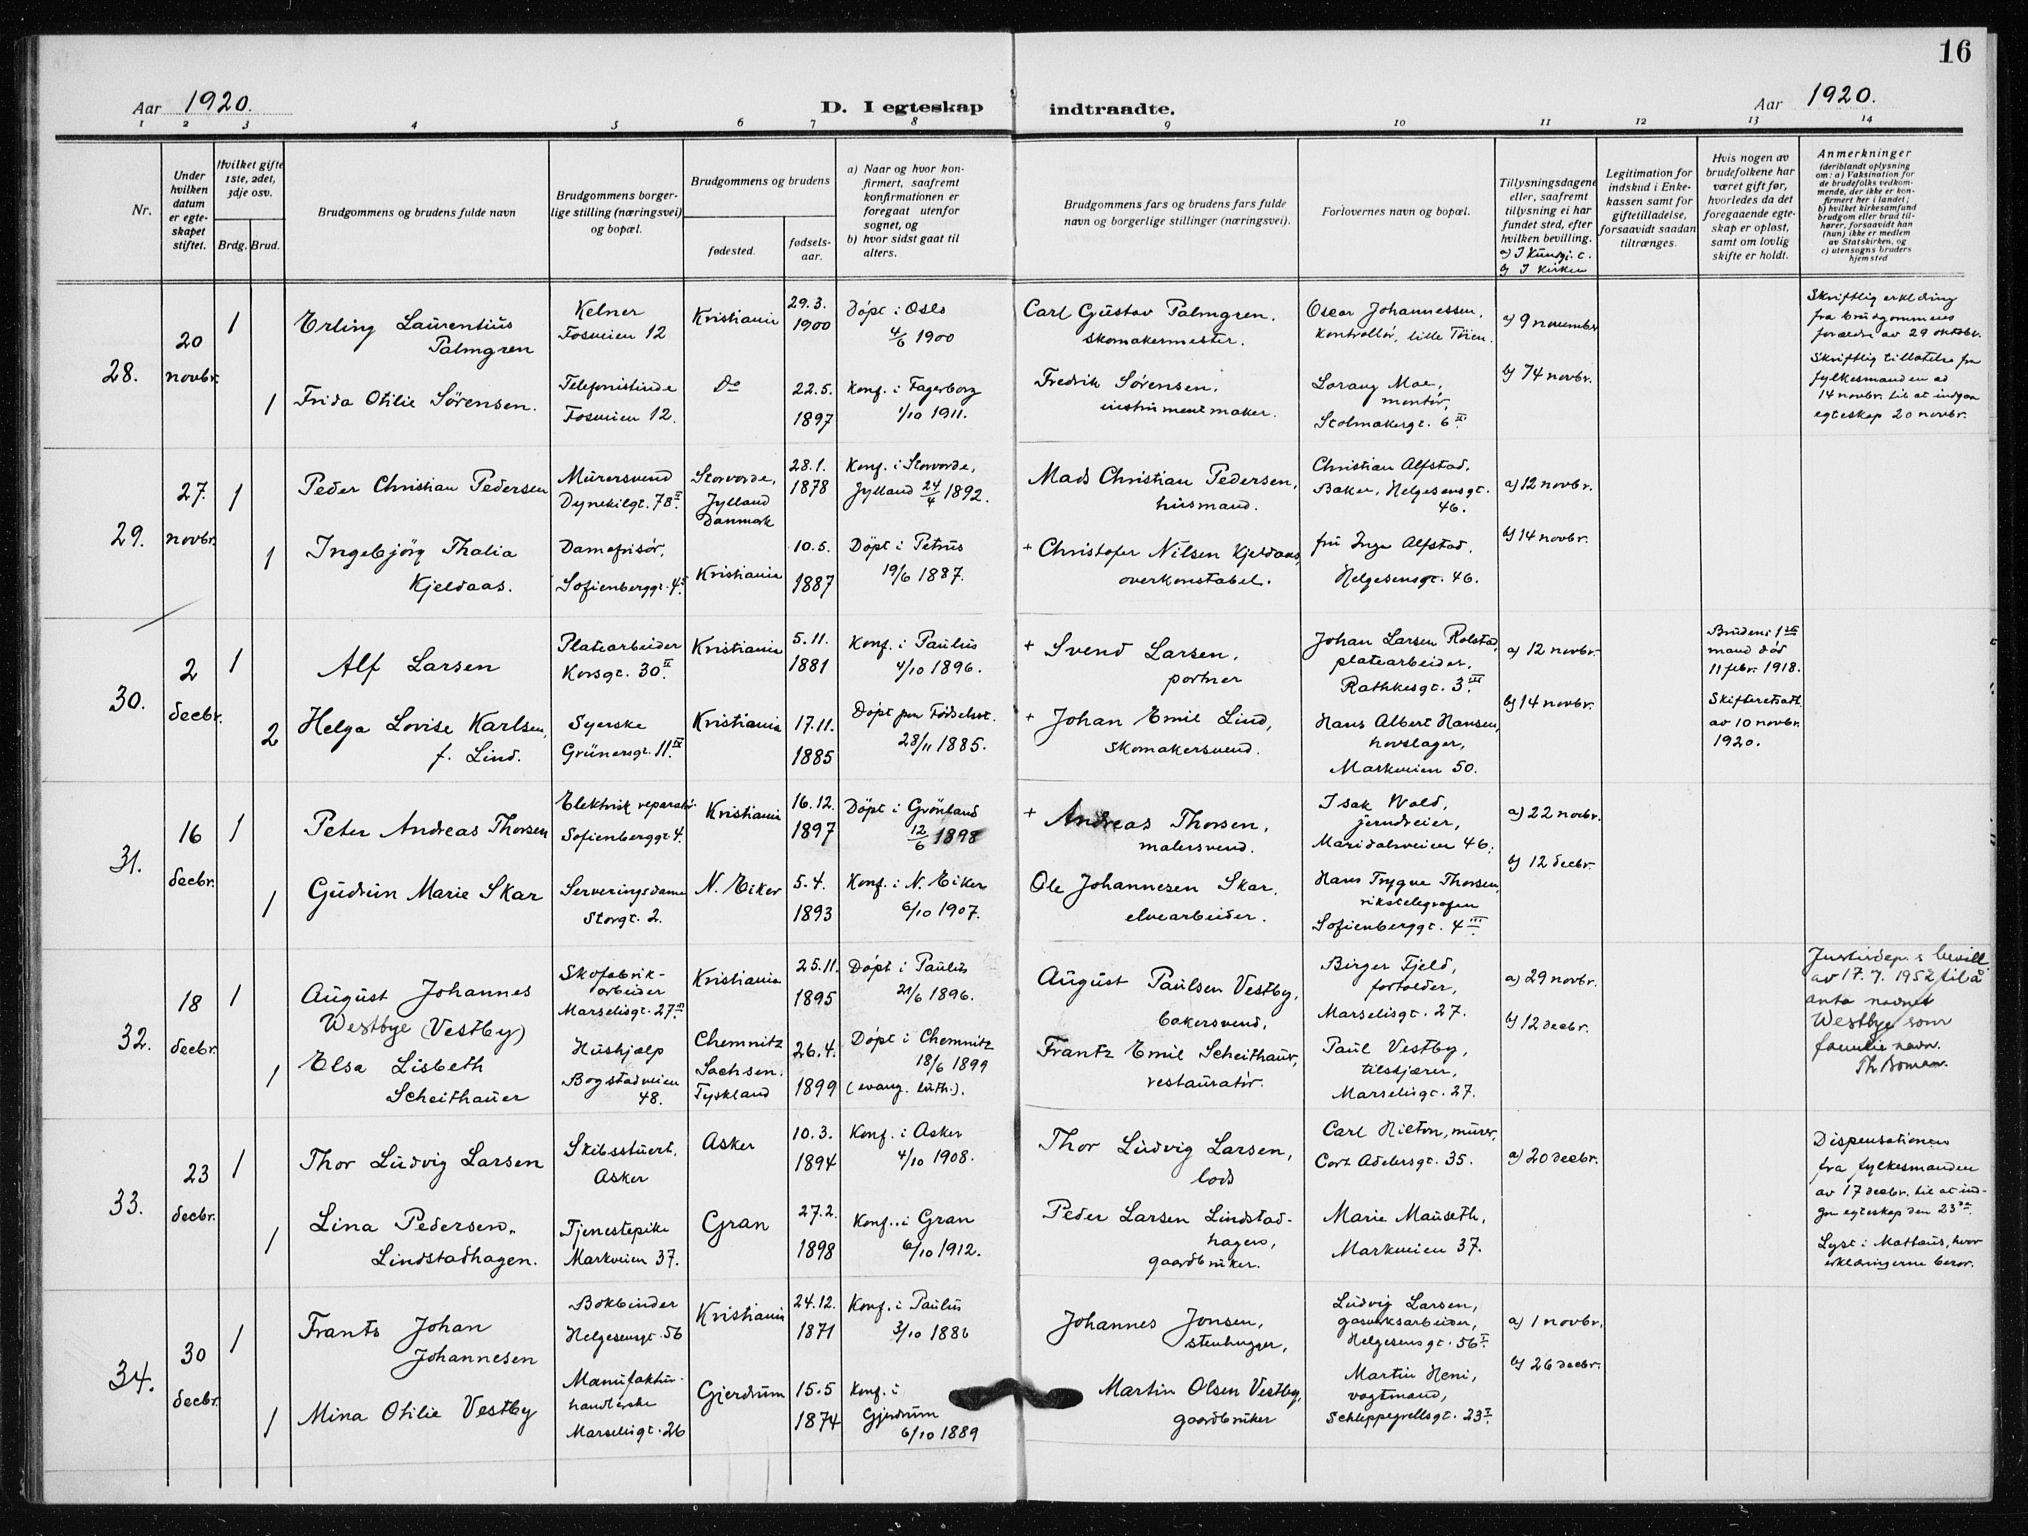 16
Aar 1920.
D. I egteskap indtraadte.
Aar 1920.
1 2 3 4 5 6 7 8 9 10 11 12 13 14
Nr.
Under hvilken datum er egteskapet stiftet.
Hvilket gifte 1ste, 2det, 3dje osv.
Brdg. Brud.
Brudgommens og brudens fulde navn
Brudgommens borgerlige stilling (næringsvei) og bopæl.
Brudgommens og brudens
fødested. fødselsaar.
a) Naar og hvor konfirmert, saafremt konfirmationen er foregaat utenfor sognet, og
b) hvor sidst gaat til alters.
Brudgommens fars og brudens fars fulde navn og borgerlige stillinger (næringsvei).
Forlovernes navn og bopæl.
Tillysningsdagene eller, saafremt tillysning ei har fundet sted, efter hvilken bevilling.
b) I Kirken
Legitimation for indskud i Enkekassen samt for giftetilladelse, forsaavidt saadan tiltrænges.
Hvis nogen av brudefolkene har været gift før, hvorledes da det foregaaende egteskap er opløst, samt om lovlig skifte er holdt.
Anmerkninger
(deriblandt oplysning om: a) Vaksination for de brudefolks vedkommende, der ikke er konfirmert her i landet; b) hvilket kirkesamfund brudgom eller brud tilhører, forsaavidt han (hun) ikke er medlem av Statskirken, og c) utensogns bruders hjemsted
28.
20 novbr.
1
Erling Laurentius
Palmgren
Kelner
Fosveien 12
Kristiania
29.3.
1900
Døpt i Oslo
4/6 1900
Carl Gustav Palmgren.
skomakermester.
Oscar Johannessen,
kontrollør, lille Tøien.
a) 9 november
Skriftlig erklæring
fra brudgommens
forældre av 29 oktobr.
1
Frida Otilie Sørensen.
Telefonistinde
Fosveien 12.
Do
22.5.
1897
Konf. i Fagerborg
1/10 1911.
Fredrik Sørensen,
instrumentmaker.
Lorang Moe,
montør,
Stolmakergt. 6 II.
b) 14 novbr.
Skriftlig tillatelse fra
fylkesmanden ad
14 novbr. til at indgaa
egteskap 20 novbr.
29.
27. novbr.
1
Peder Christian Pedersen
Murersvend
Dynekilgt. 7B. II
Storvorde,
Jylland
Danmark
28.1.
1878
Konf. i Storvorde,
Jylland 24/4 1892.
Mads Christian Pedersen,
husmand.
Christian Alfstad,
Baker, Helgesensgt.
46.
a) 12 novbr.
1
Ingebjörg Thalia
Kjeldaas.
Damefrisør,
Sofienberggt. 4.
Kristiania
10.5.
1887
Døpt i Petrus
19/6 1887.
+ Christofer Nilsen Kjeldaas,
overkonstabel.
fru Inga Alfstad,
Helgesensgt. 46.
b) 14 novbr.
30.
2 decbr.
1
Alf Larsen
Platearbeider
Korsgt. 30. II
Kristiania
5.11.
1881
Konf. i Paulus
4/10 1896.
+ Svend Larsen,
portner
Johan Larsen Rolstad,
platearbeider,
Rathkesgt. 3. III
a) 12 novbr.
Brudens 1ste
mand død
11 febr. 1918.
2
Helga Lovise Karlsen,
f. Lind.
Syerske
Grünersgt. 11 IV.
Kristiania
17.11.
1885
Døpt paa Fødselsst.
28/11 1885.
+ Johan Emil Lind,
skomakersvend.
Hans Albert Hansen,
hovslager,
Markveien 50.
b) 14 novbr.
Skifteretsatt.
av 10 novbr.
1920.
31.
16 decbr.
1
Peter Andreas Thorsen
Elektrisk reparatør
Sofienberggt. 4.
Kristiania
16.12.
1897
Døpt i Grønland
12/6 1898
+ Andreas Thorsen,
malersvend.
Isak Wold,
jerndreier,
Maridalsveien 46.
a) 22 novbr.
1
Gudrun Marie Skar
Serveringsdame
Storgt. 2.
N. Eiker
5.4.
1893
Konf. i N. Eiker
6/10 1907.
Ole Johannesen Skar,
elvearbeider.
Hans Trygve Thorsen,
rikstelegrafen
Sofienberggt. 4 III.
b) 12 decbr.
32.
18 decbr.
1
August Johannes
Westbye (Vestby)
Skofabrik-
arbeider
Marselisgt. 27. II
Kristiania
25.11.
1895
Døpt i Paulus
21/6 1896.
August Paulsen Vestby,
bakersvend,
Birger Fjeld,
forfolder,
Marselisgt. 27.
a) 29 novbr.
Justisdep.s bevill.
av 17.7. 1952 til å
anta navnet
Westbye som
familienavn.
1
Elsa Lisbeth
Scheithauer
Hushjælp
Bogstadveien
48.
Chemnitz
Sachsen.
Tyskland
26.4.
1899
Døpt i Chemnitz
18/6 1899
(evang. luth.).
Frantz Emil Scheithauer,
restauratør.
Paul Vestby,
tilskjærer,
Marselisgt. 27.
b) 12 decbr.
33.
23 decbr.
1
Thor Ludvig Larsen
Skibsstuert,
Asker
Asker
10.3.
1894
Konf. i Asker
4/10 1908.
Thor Ludvig Larsen,
lods
Carl Hilton, murer,
Cort Adelersgt. 35.
a) 20 decbr.
Dispensationen
fra fylkesmanden
av 17 decbr. til at ind-
gaa egteskap den 23de.
1
Lina Pedersen
Lindstadhagen.
Tjenestepike
Markveien 37.
Gran
27.2.
1898
Konf. i Gran
6/10 1912.
Peder Larsen Lindstad-
hagen,
gaardbruker.
Marie Mauseth,
Markveien 37.
Lyst i Mattæus, hvor
erklæringerne beror.
34.
30 decbr.
1
Frants Johan
Johannesen
Bokbinder
Helgesensgt. 56
Kristiania
24.12.
1871
Konf. i Paulus
3/10 1886
Johannes Jonsen,
stenhugger,
Ludvig Larsen,
gasverksarbeider,
Helgesensgt. 56 I.
a) 1 novbr.
1
Mina Otilie Vestby
Manufaktur-
handlerske
Marselisgt. 26
Gjerdrum
15.5
1874
Konf. i
Gjerdrum
6/10 1889
Martin Olsen Vestby,
gaardbruker
Martin Heni,
vogtmand,
Schleppegrellsgt. 23 I.
b) 26 decbr.